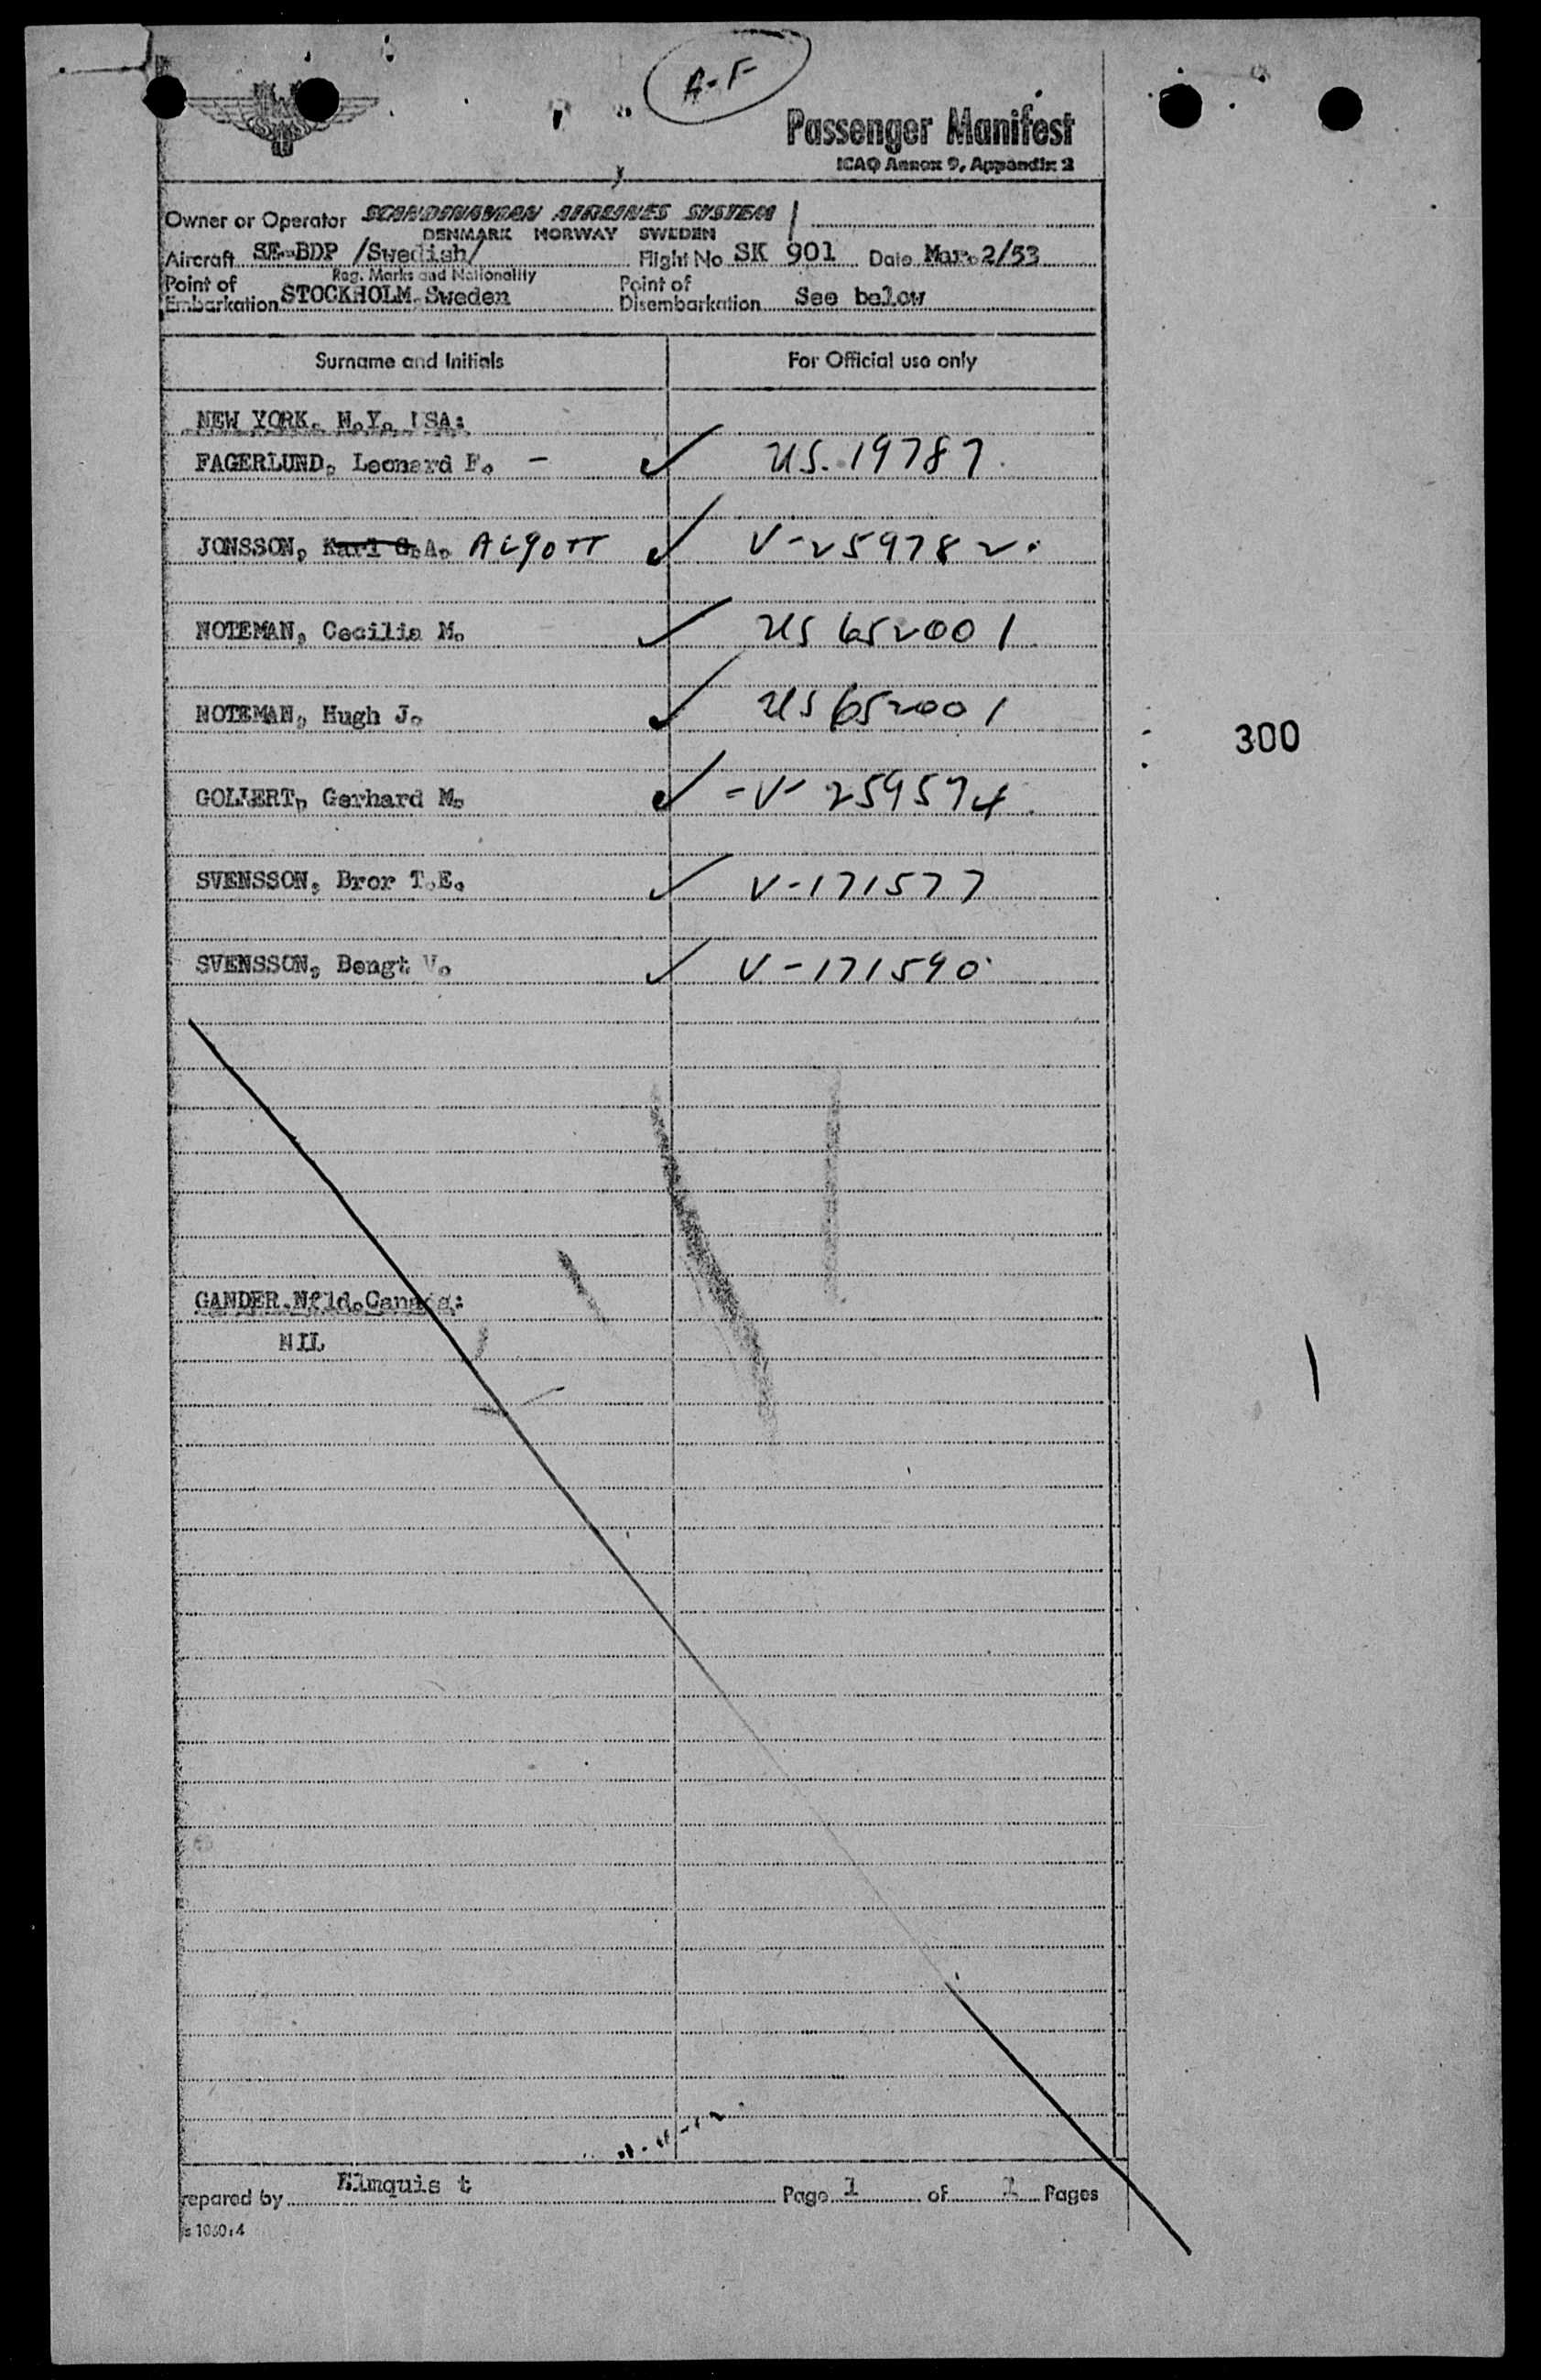 A-F
Passenger Manifest
ICAO Annex 9, Appendix 2
Owner or Operator SCANDINAVIAN AIRLINES SYSTEM
DENMARK NORWAY SWEDEN
Aircraft SE-BDP /Swedish/ Flight No SK 901 Date Mar. 2/53
Reg. Marks and Nationality
Point of Embarkation STOCKHOLM, Sweden Point of Disembarkation See below
Surname and Initials For Official use only
NEW YORK. N.Y. USA:
FAGERLUND, Leonard F. - ✓ US. 19787
JONSSON, Karl G.A. ALgOTT ✓ V-259782.
NOTEMAN, Cecilia M. ✓ US 652001
NOTEMAN, Hugh J. ✓ US 652001
300
GOLLERT, Gerhard M. ✓ -V-259574
SVENSSON, Bror T.E. ✓ V-171577
SVENSSON, Bengt V. ✓ V-171590
GANDER.Nfld.Canada:
NIL
repared by Elmquis t Page 1 of 1 Pages
s 1030:4